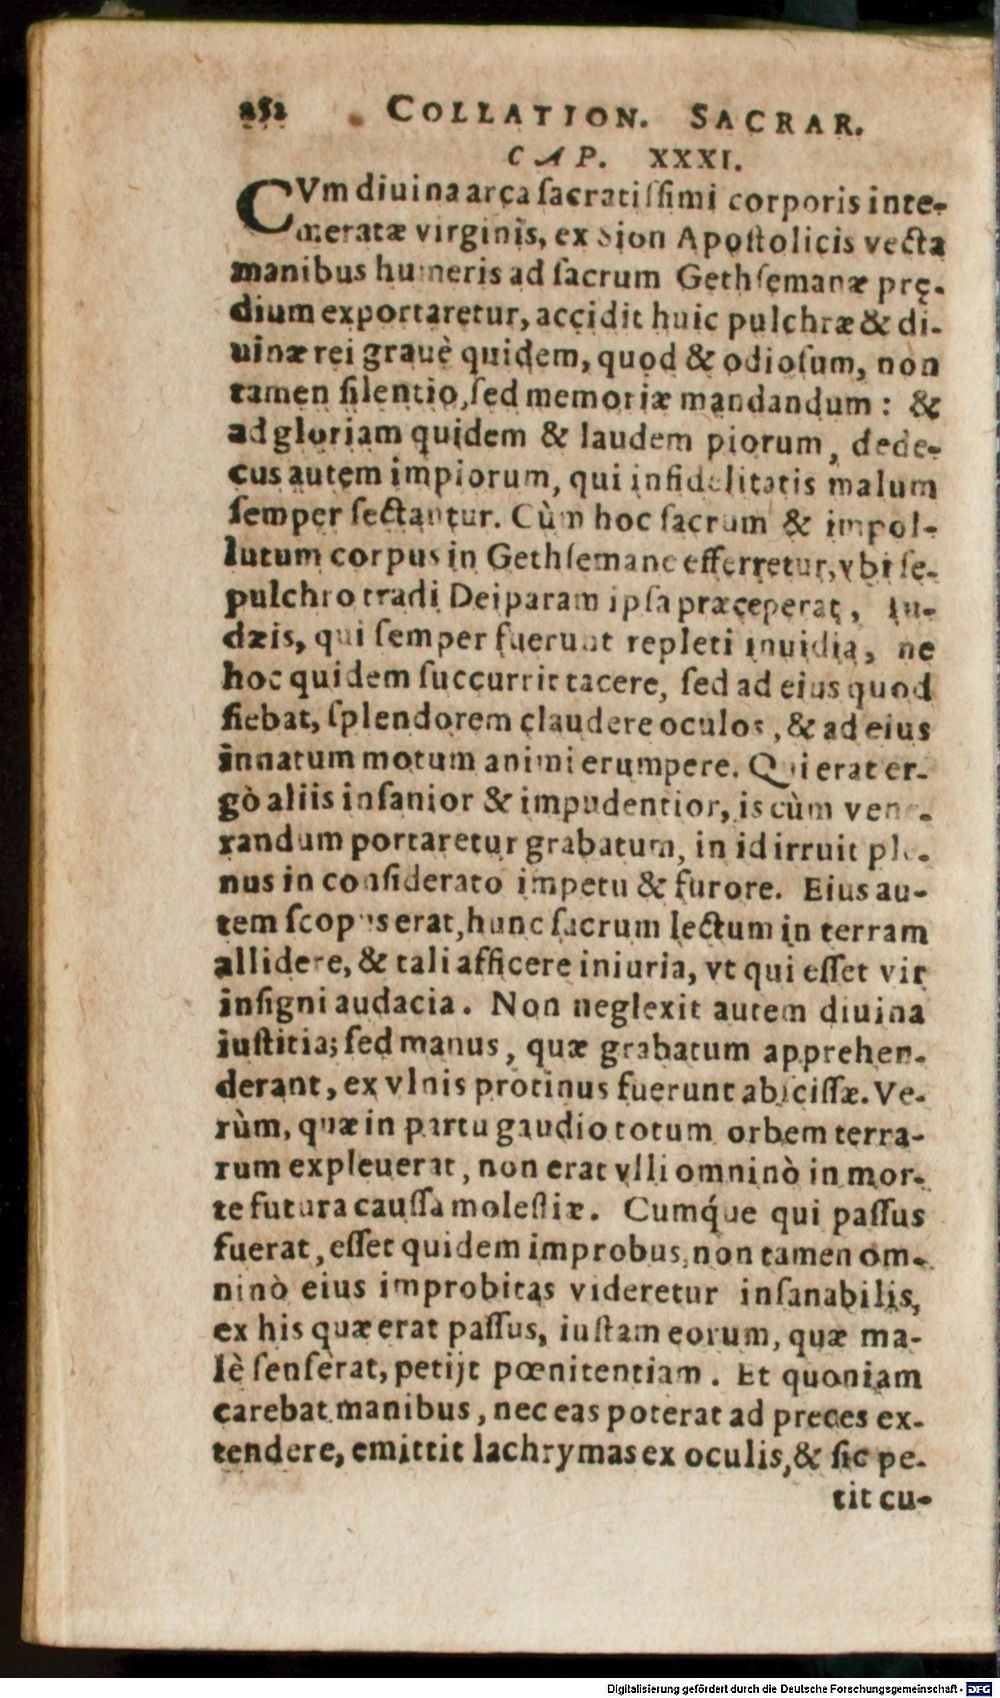 252 COLLATION. SACRAR.
CAP. XXXI.
CVm diuina arca ſacratiſſimi corporis inte-
meratæ virginis, ex Sion Apoſtolicis vecta
manibus humeris ad ſacrum Gethſemanæ prę-
dium exportaretur, accidit huic pulchræ & di-
uinæ rei grauè quidem, quod & odioſum, non
tamen ſilentio, ſed memoriæ mandandum: &
ad gloriam quidem & laudem piorum, dede-
cus autem impiorum, qui infidelitatis malum
ſemper ſectantur. Cùm hoc ſacrum & impol-
lutum corpus in Gethſemane efferretur, vbi ſe-
pulchro tradi Deiparam ipſa præceperat, Iu-
dæis, qui ſemper fuerunt repleti inuidia, ne
hoc quidem ſuccurrit tacere, ſed ad eius quod
fiebat, ſplendorem claudere oculos, & ad eius
innatum motum animi erumpere. Qui erat er-
gò aliis inſanior & impudentior, is cùm vene-
randum portaretur grabatum, in id irruit ple-
nus in conſiderato impetu & furore. Eius au-
tem ſcopus erat, hunc ſacrum lectum in terram
allidere, & tali afficere iniuria, vt qui eſſet vir
inſigni audacia. Non neglexit autem diuina
iuſtitia; ſed manus, quæ grabatum apprehen-
derant, ex vlnis protinus fuerunt abſciſſæ. Ve-
rùm, quæ in partu gaudio totum orbem terra-
rum expleuerat, non erat vlli omninò in mor-
te futura cauſſa moleſtiæ. Cumq́ue qui paſſus
fuerat, eſſet quidem improbus, non tamen om-
ninò eius improbitas videretur inſanabilis,
ex his quæ erat paſſus, iuſtam eorum, quæ ma-
lè ſenſerat, petijt pœnitentiam. Et quoniam
carebat manibus, nec eas poterat ad preces ex-
tendere, emittit lachrymas ex oculis, & ſic pe-
tit cu-
Digitalisierung gefördert durch die Deutsche Forschungsgemeinschaft - DFG